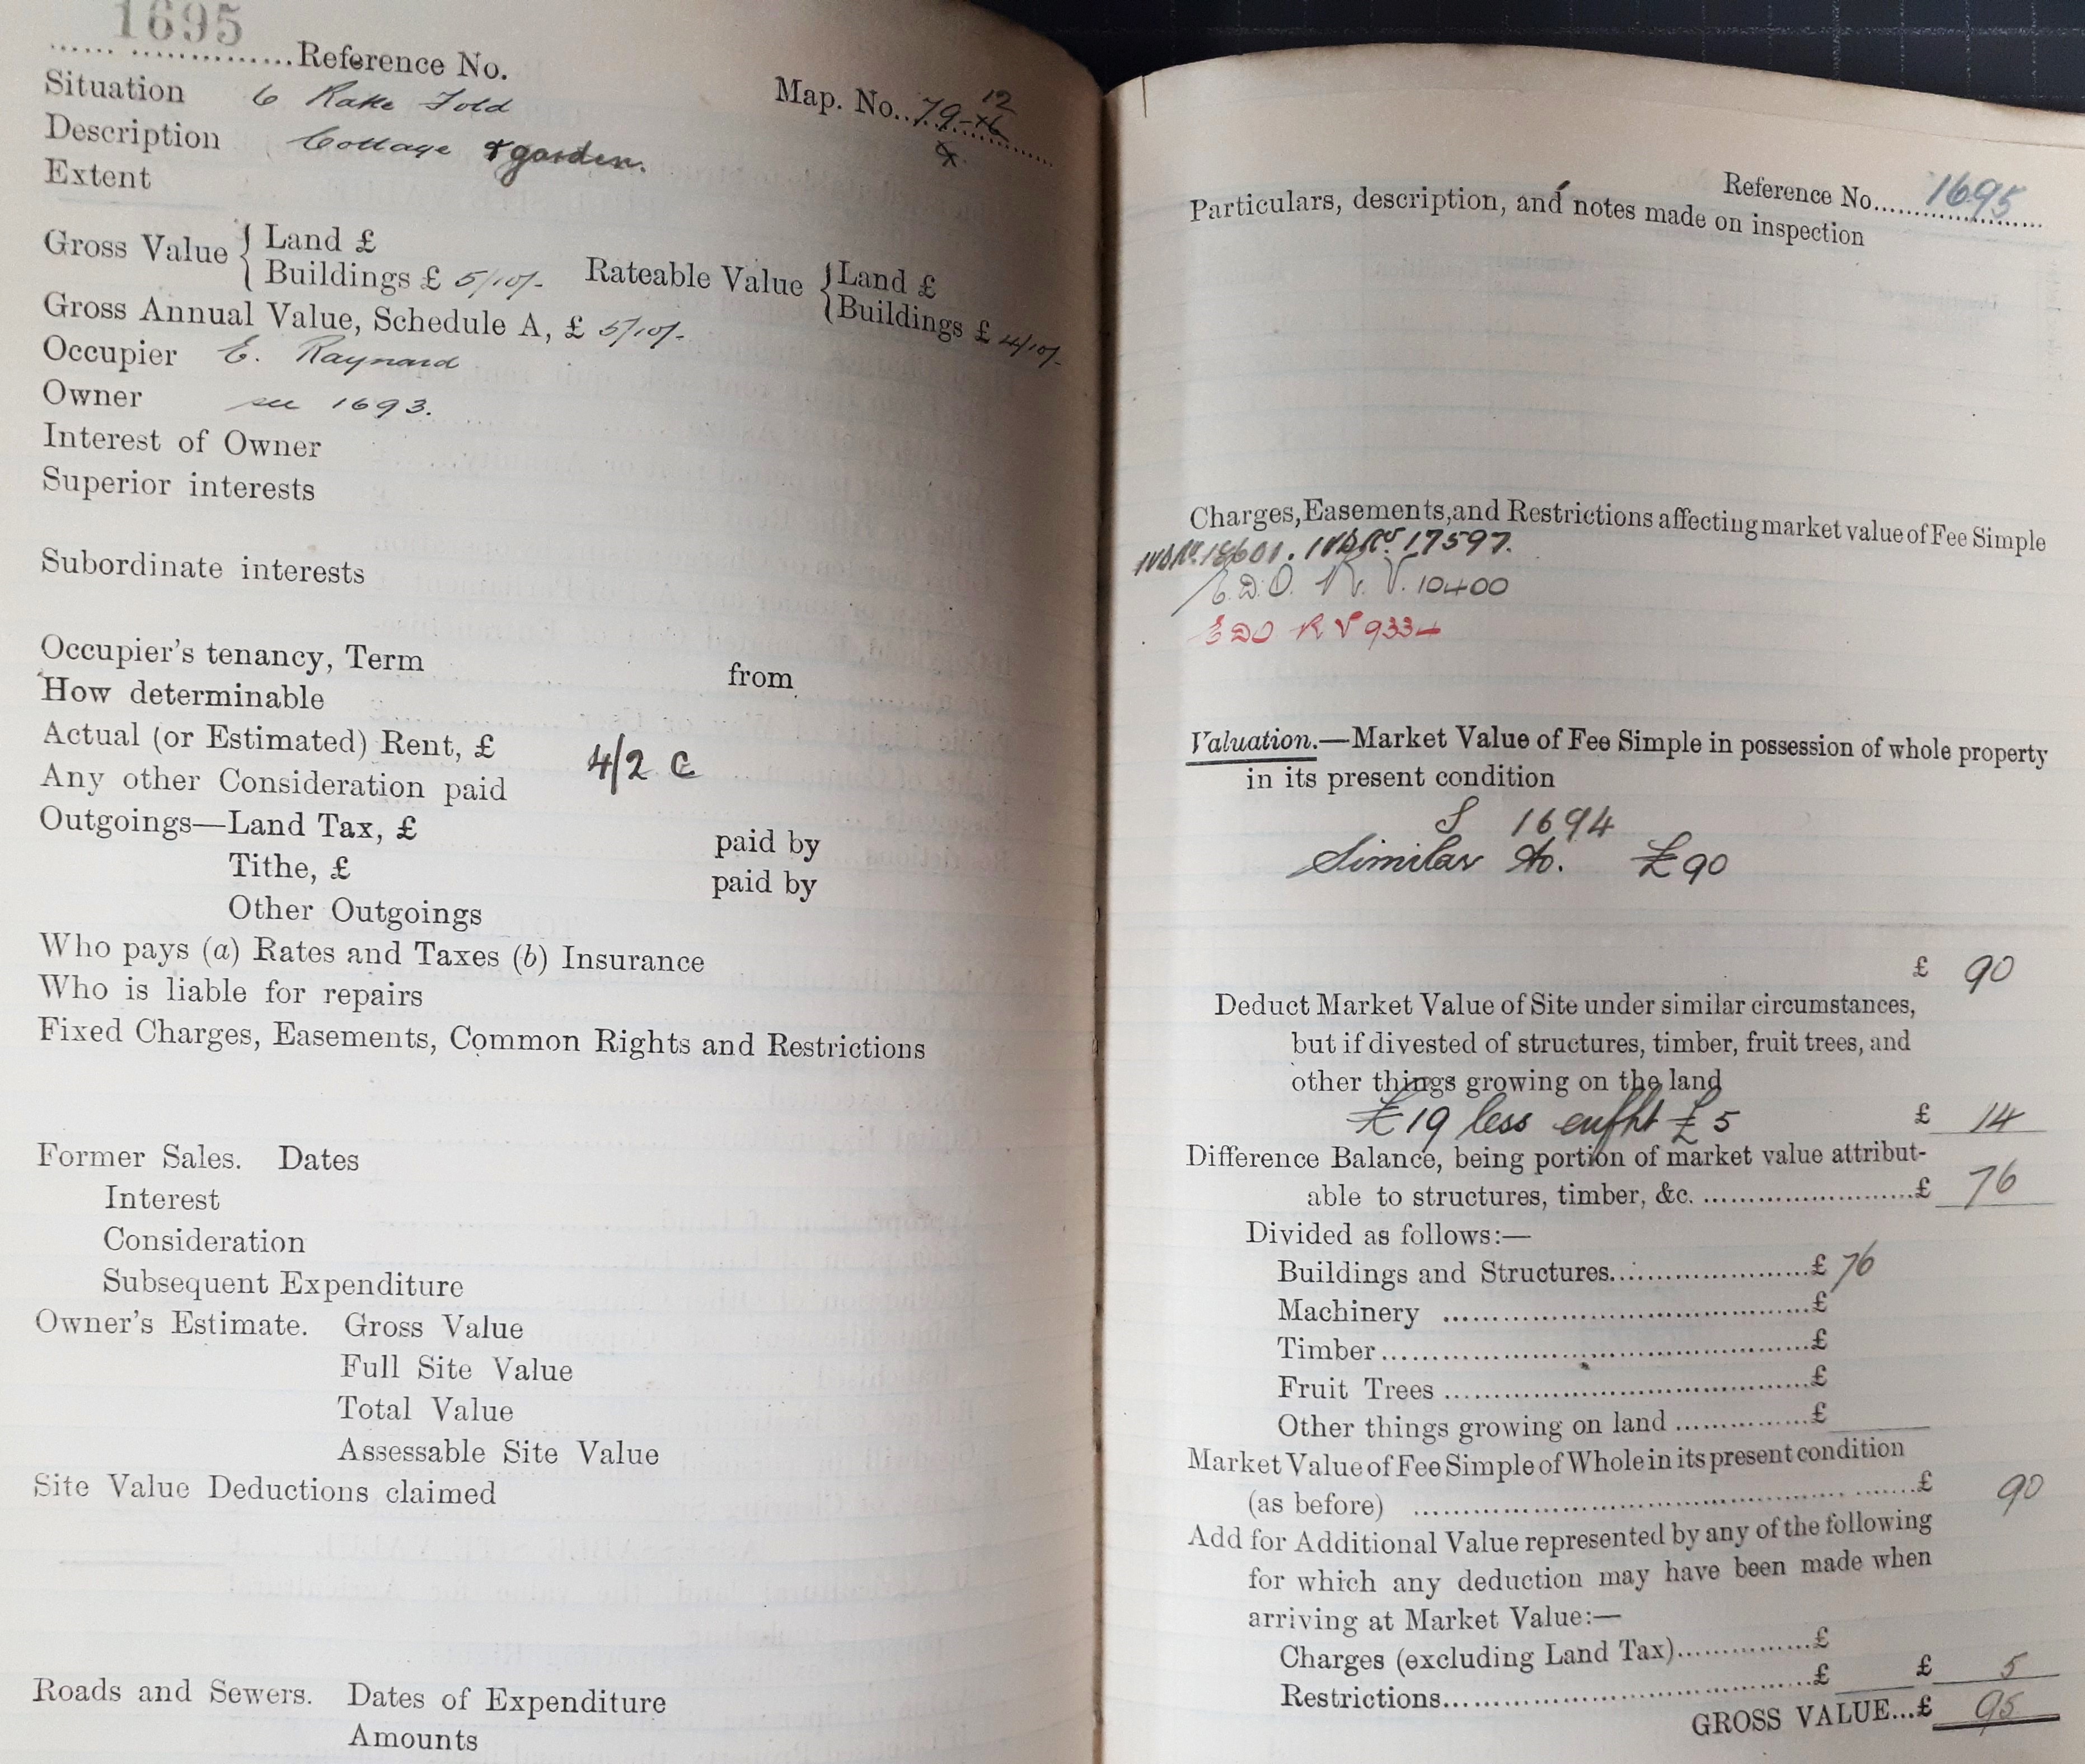 1695
Reference No.
Map. No. 79-16 12
Situation 6 Rake Fold
Description Cottage & garden.
Extent
Gross Value { Land £
Buildings £ 5/10/-
Rateable Value { Land £
Buildings £ 4/10/-
Gross Annual Value, Schedule A, £ 5/10/-
Occupier E. Raynard
Owner see 1693.
Interest of Owner
Superior interests
Subordinate interests
Occupier's tenancy, Term from
How determinable
Actual (or Estimated) Rent, £ 4/2 C
Any other Consideration paid
Outgoings—Land Tax, £ paid by
Tithe, £ paid by
Other Outgoings
Who pays (a) Rates and Taxes (b) Insurance
Who is liable for repairs
Fixed Charges, Easements, Common Rights and Restrictions
Former Sales. Dates
Interest
Consideration
Subsequent Expenditure
Owner's Estimate. Gross Value
Full Site Value
Total Value
Assessable Site Value
Site Value Deductions claimed
Roads and Sewers. Dates of Expenditure
Amounts
Reference No. 1695
Particulars, description, and notes made on inspection
Charges, Easements, and Restrictions affecting market value of Fee Simple
18601. 17597.
E.D.O. R.V. 10400
EDO RV 9334
Valuation.—Market Value of Fee Simple in possession of whole property
in its present condition
S 1694
Similar to. £90
£ 90
Deduct Market Value of Site under similar circumstances,
but if divested of structures, timber, fruit trees, and
other things growing on the land
£19 less £5 £ 14
Difference Balance, being portion of market value attribut-
able to structures, timber, &c. £ 76
Divided as follows:—
Buildings and Structures £ 76
Machinery £
Timber £
Fruit Trees £
Other things growing on land £
Market Value of Fee Simple of Whole in its present condition
(as before) £ 90
Add for Additional Value represented by any of the following
for which any deduction may have been made when
arriving at Market Value:—
Charges (excluding Land Tax) £
Restrictions £ £ 5
GROSS VALUE...£ 95